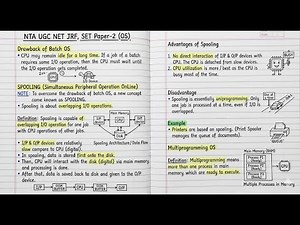 NTA UGC NET JRF, SET Paper-2 (OS)
Drawback of Batch OS
• CPU may remain idle for a long time. If a job of a batch
requires some I/O operation, then the CPU must wait until
the I/O operation completes.
SPOOLING (Simultaneous Peripheral Operation OnLine)
NOTE: To overcome the drawback of batch OS, a new concept
came known as SPOOLING.
• Spooling is about overlapping I/O operations.
Definition: Spooling is capable of
overlapping I/O operation for one
job with CPU operations of other
jobs.
• I/P & O/P devices are relatively
slow compare to CPU (digital).
Spooling Architecture/Data Flow
• In spooling, data is stored first onto the disk.
• Then, CPU will interact with the disk (digital) via main memory
and processing is done.
• After that, data is saved back to disk and given to the O/P
device.
Advantages of Spooling
1. No direct interaction of I/P & O/P devices with
CPU. The CPU is detached from slow devices.
2. CPU utilization is more / best as the CPU is
busy most of the time.
Disadvantage
• Spooling is essentially uniprogramming. Only
one job is processed at a time, even if I/O is
overlapped.
Example
• Printers are based on spooling. (Print Spooler
manages the queue of documents).
Multiprogramming OS
Definition: Multiprogramming means
more than one process in main memory
which are ready to execute.
Main Memory (RAM)
Process P1
(Ready)
Process P2
(Ready)
Multiple Processes in Memory